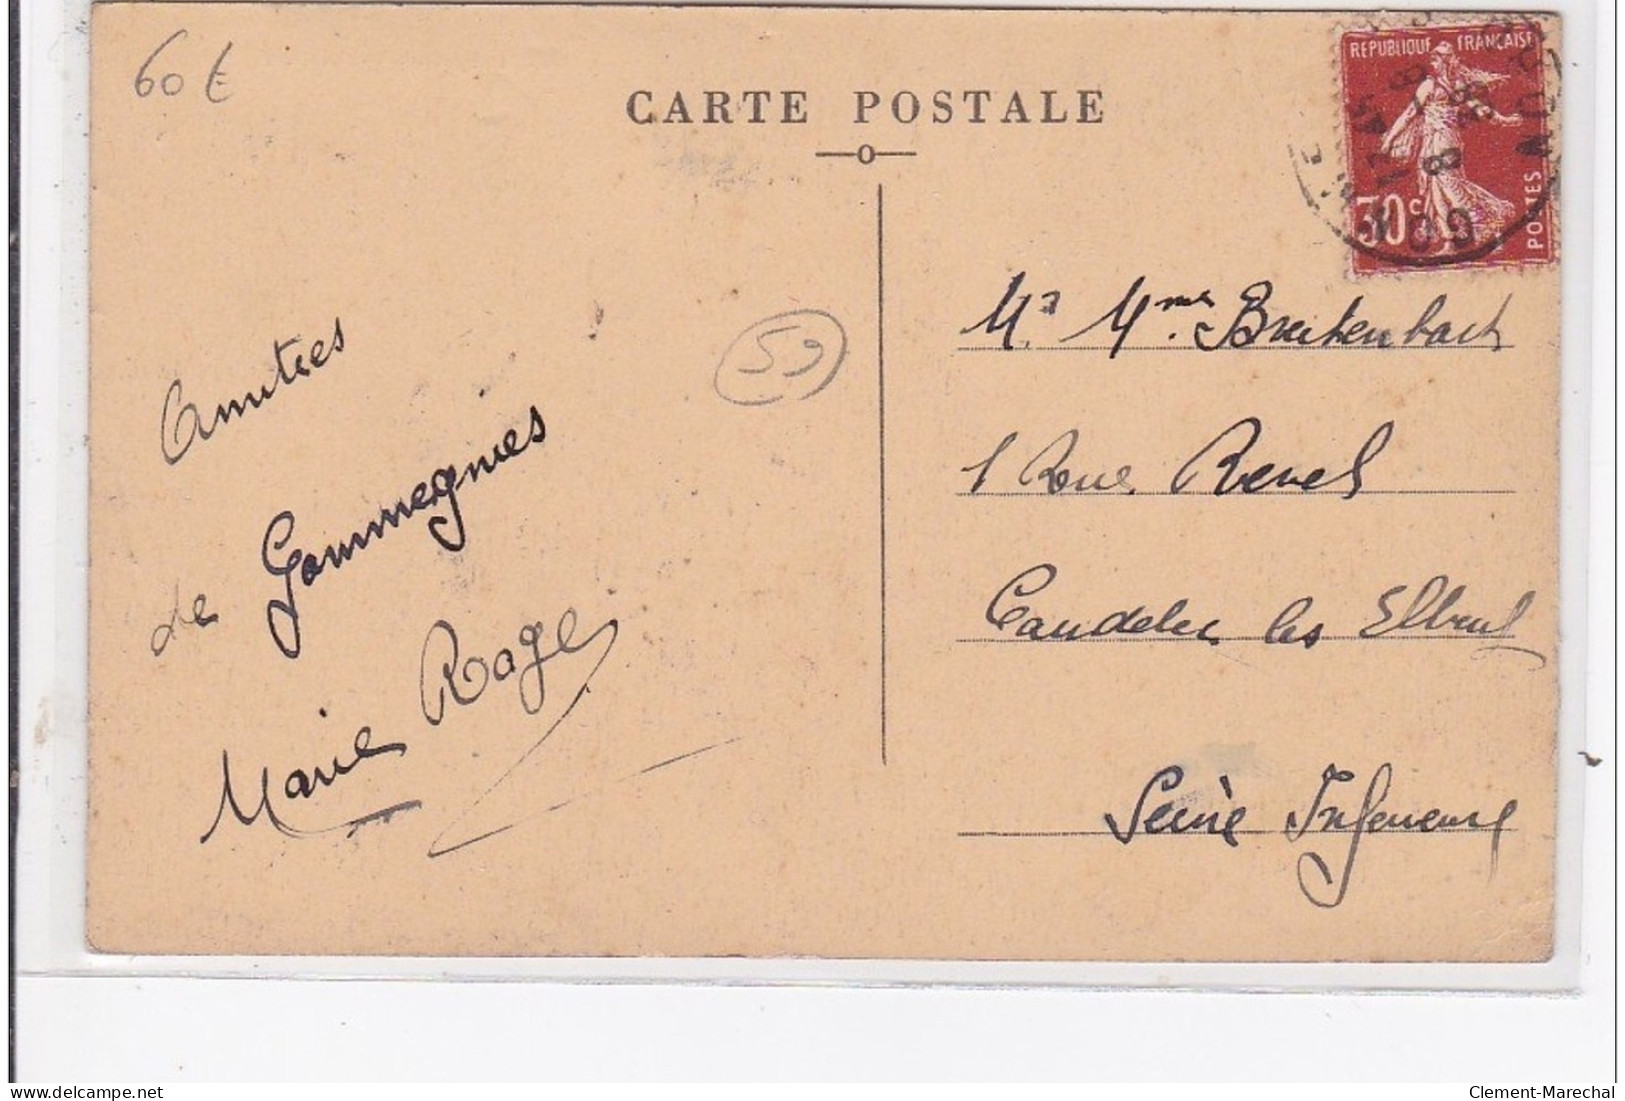 60 €
CARTE POSTALE
REPUBLIQUE FRANÇAISE
30c
POSTES
12 45
8
59
Amitiés
de Gommegnies
Marie Roge
Mr Mme Breitenbach
1 Rue Revel
Caudebec les Elbeuf
Seine Inférieure
delcampe.net
Clement-Marechal